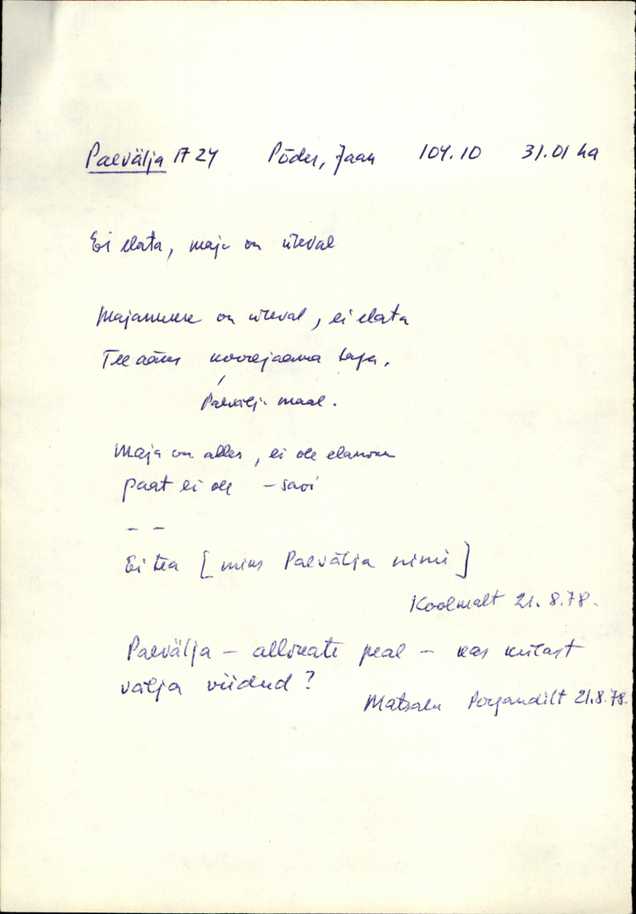 Paevälja A 24 Põder, Jaan 104.10 31.01 ha
Ei elata, maja on üleval
Majamure on üleval, ei elata
Tee ääres taga,
Paevälj maal.
Maja on alles, ei ole elanikke
paat ei ole – savi
– –
Ei tea [miks Paevälja nimi]
Koolmalt 21.8.78.
Paevälja – allikate peal – kas külast
välja viidud?
Matsalu Porgandilt 21.8.78.